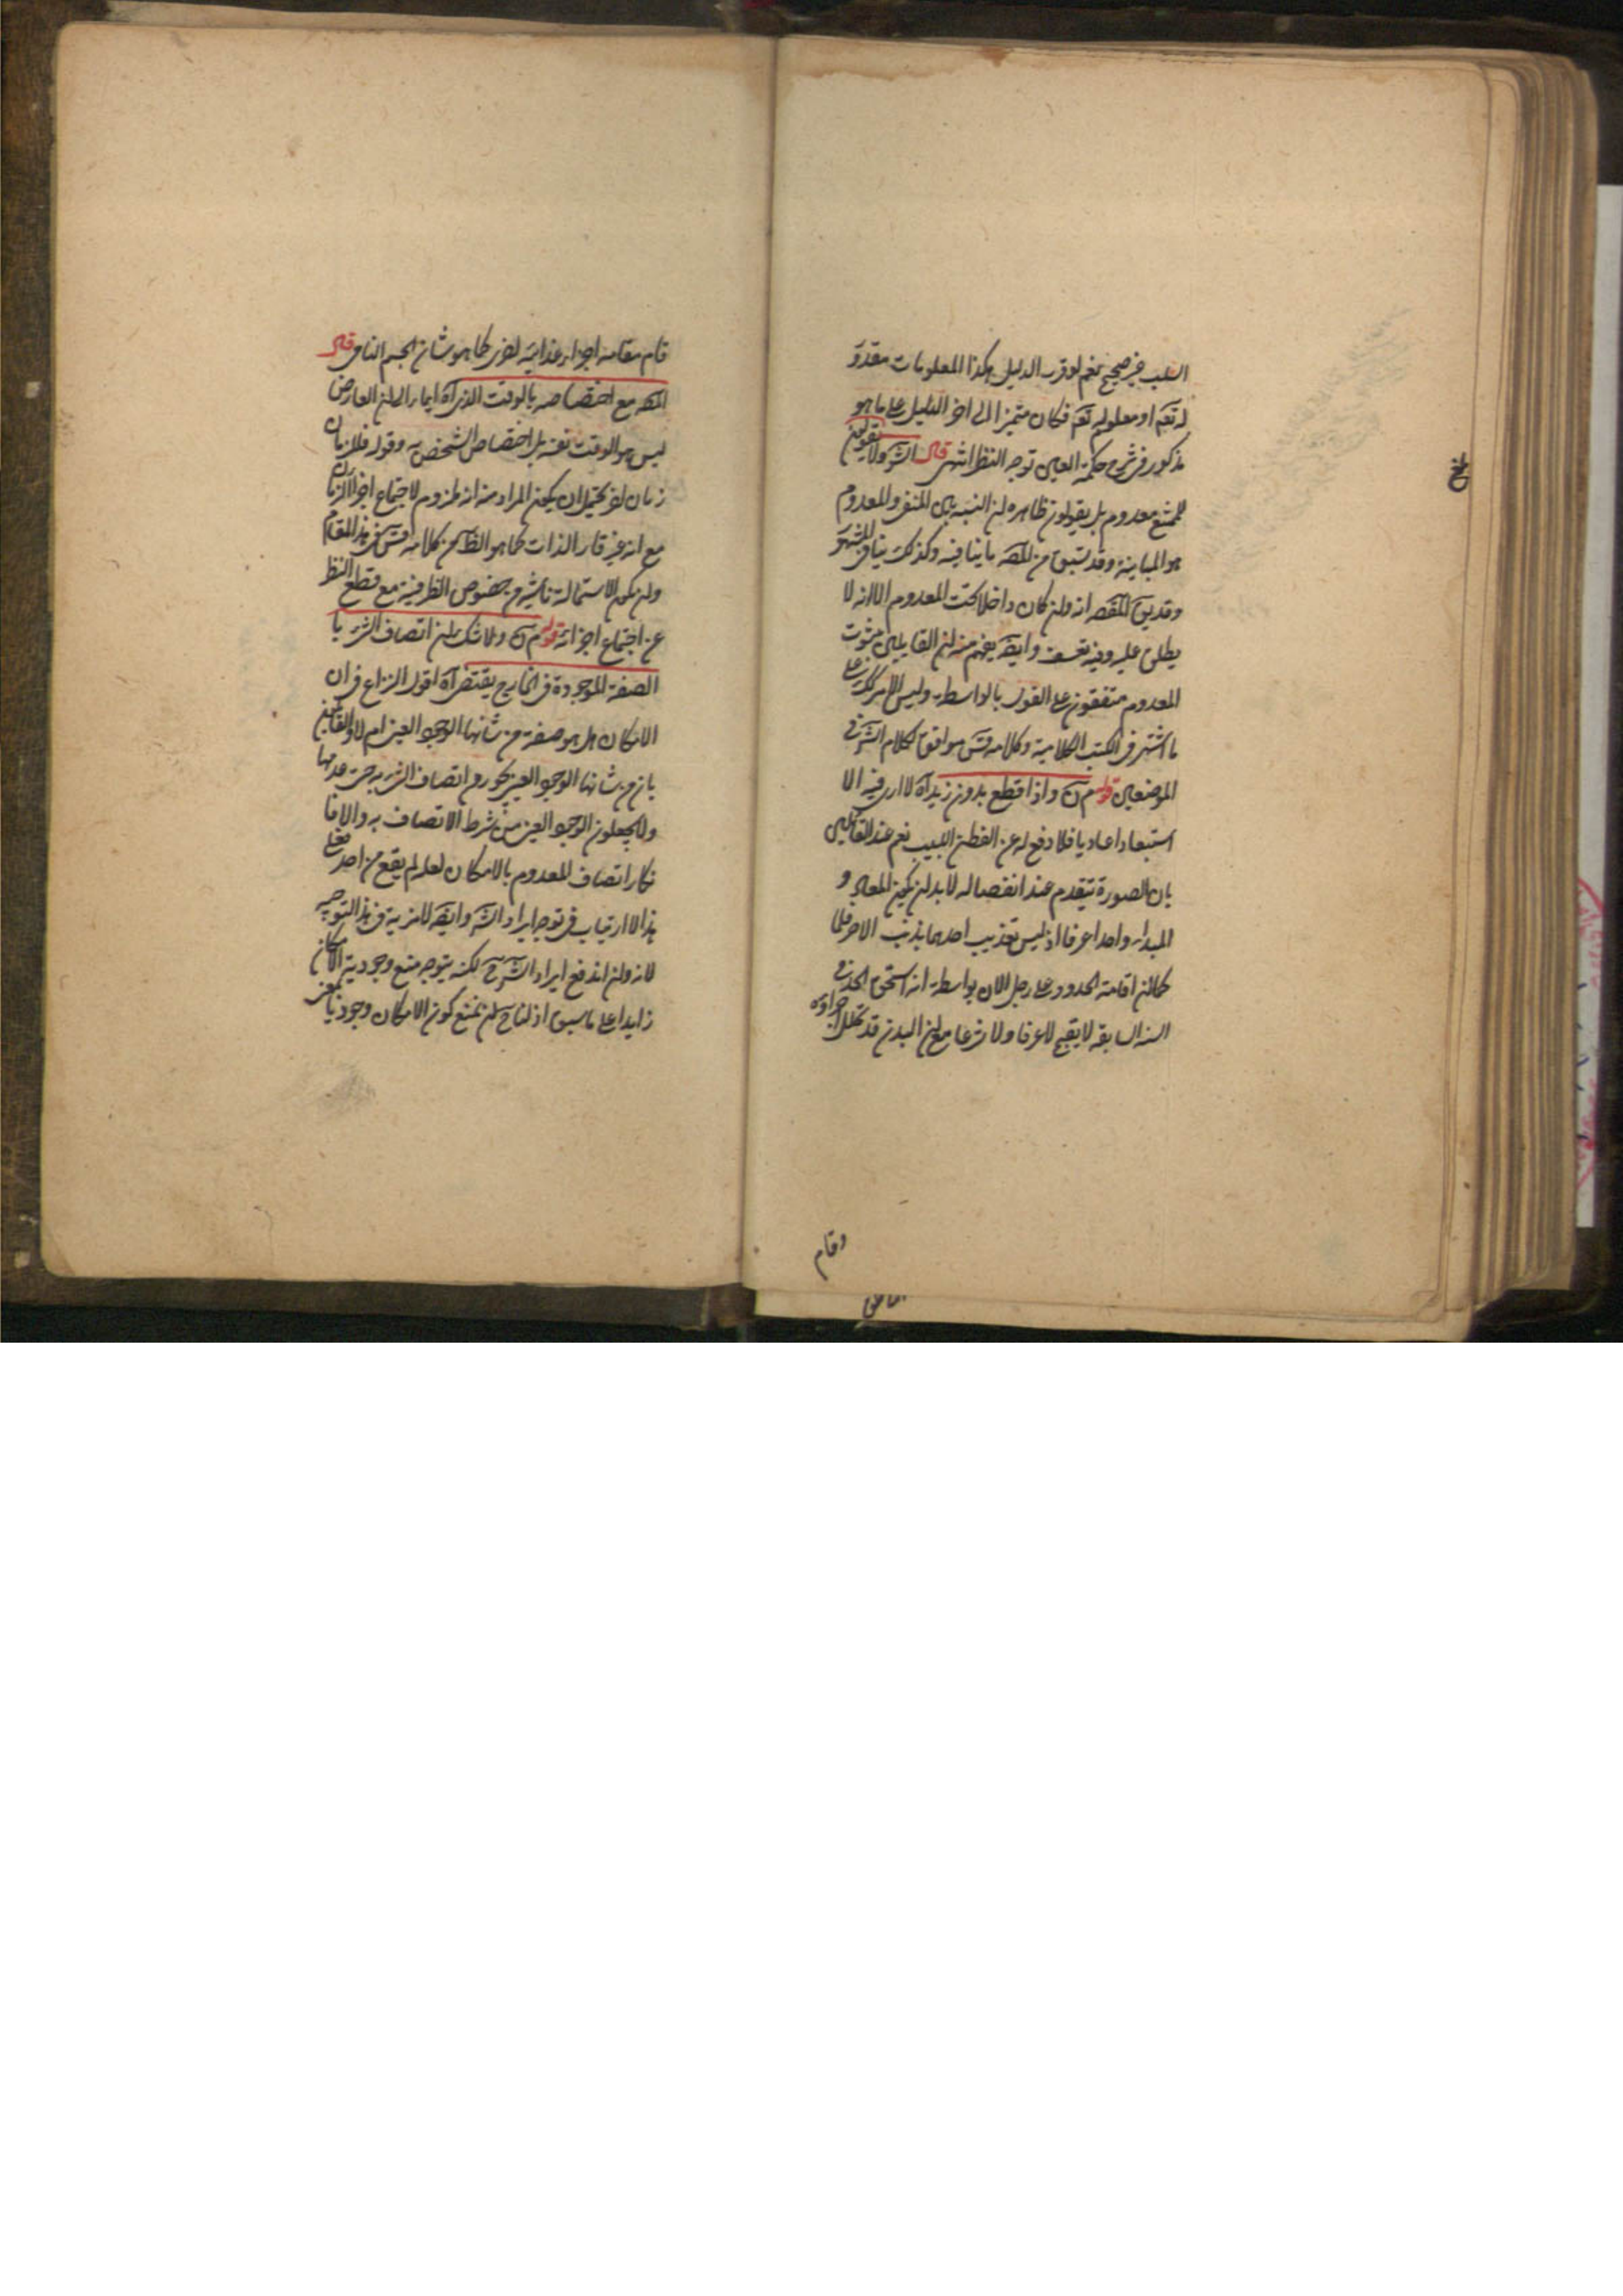 السلب غير صحيح نعم لو قرر الدليل هكذا المعلومات مقدورة
له تعم او معلوم له تعم فكان متميزا الى اخر الدليل على ما هو
مذكور في شرح حكمة العين توجه النظر انتهى قال الش ولا يقولون
للممتنع معدوم بل يقولون ظاهره لن النسبة بين المنفي والمعدوم
هو المباينة وقد سبق من المصه ما ينافيه وكذلك ينافي المشهور
وقد يق المقصد انه ولن كان داخلا تحت المعدوم الا انه لا
يطلق عليه وفيه تعسف وايضه يفهم منه لن القايلين بثبوت
المعدوم متفقون على القول بالواسطة وليس الامر كذلك على
ما اشتهر في الكتب الكلامية وكلامه قس موافق لكلام الش في
الموضعين قوله م ن واذا قطع بدون زيد آه لا ارى فيه الا
استبعادا عاديا فلا دفع له عن الفطن اللبيب نعم عند القائلين
بان الصورة تتقدم عند انفصاله لابد لن يكون المعاد و
المبداء واحدا عرفا اذ ليس تعذيب احدهما بذنب الاخر ظلما
كما لن اقامة الحدود على رجل الان بواسطة انه استحق الحد في
السنة السابقة لا يقبح لا عرفا ولا شرعا مع لن البدن قد تحلل اجزاؤه
وقام
قام مقامه اجزاء غذائية لخرى كما هو شان الجسم النامى قال
المصه مع اختصاصه بالوقت الذي آه ايماء الى لن العارض
ليس هو الوقت نفسه بل اختصاص الشخص به وقوله فللزمان
زمان لخر يحتمل ان يكون المراد منه انه ملزوم لاجتماع اجزاء الزمان
مع انه غير قار الذات كما هو الظ من كلامه قس في هذا المقام
ولن يكون الاستحالة ناشية من خصوص الظرفية مع قطع النظر
عن اجتماع اجزائه قوله م ن ولا شك لن اتصاف الشئ با
الصفة الموجودة في الخارج يقتضى آه اقول النزاع في ان
الامكان هل هو صفة من شانها الوجود العيني ام لا والقائلون
بان من شانها الوجود العيني يجوزون اتصاف الشئ به حين عدمها
ولا يجعلون الوجود العيني من شرط الاتصاف به والا فا
نكار اتصاف المعدوم بالامكان لعله لم يقع من احد فعلى
هذا لا ارتياب في توجه ايراد الش وايضه لا مزية في هذا التوجيه
لانه ولن اندفع ايراد الش ح لكنه يتوجه منع وجودية الامكان
زايدا على ما سبق اذ لنا ح لن نمنع كون الامكان وجوديا بمعنى